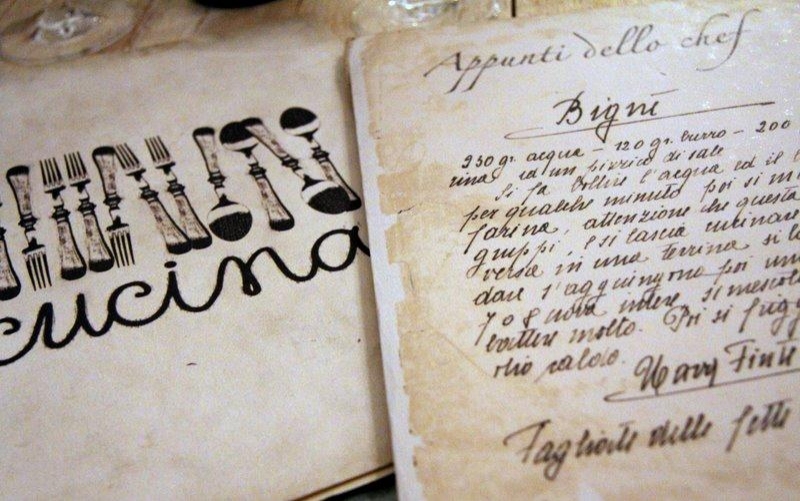 cucina
Appunti dello chef
Bignè
250 gr. acqua - 120 gr. burro - 200
rina ed un pizzico di sale
Si fa bollire l'acqua ed il
per qualche minuto poi si me
farina, attenzione che questa
gruppi, e si lascia cucinare
versa in una terrina si la
dare s'aggiungono poi un
7 o 8 uova intere si mescola
battere molto. Poi si frigg
olio caldo.
Tagliate delle fette